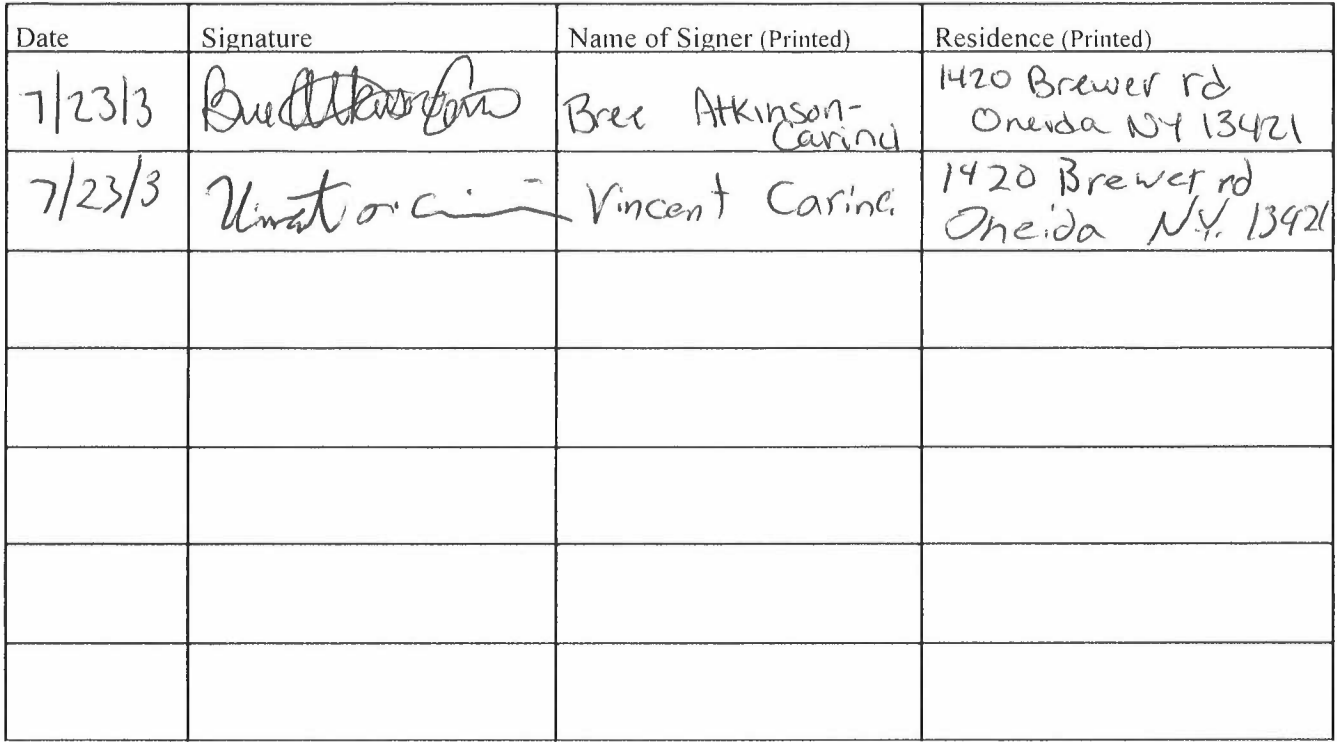 Date Signature Name of Signer (Printed) Residence (Printed)
7/23/3 Bree Atkinson- 1420 Brewer rd
Carinci Oneida NY 13421
7/23/3 Vincent Carinci 1420 Brewer rd
Oneida N.Y. 13421